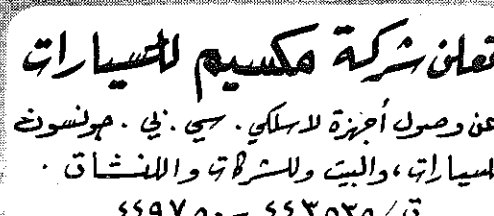 تعلن شركة مكسيم للسيارات
عن وصول أجهزة لاسلكي . سي . بي . جونسون
للسيارات ، والبيت وللشركات واللنشات .
ت / ٤٤٣٥٣٥ - ٤٤٩٧٥٠